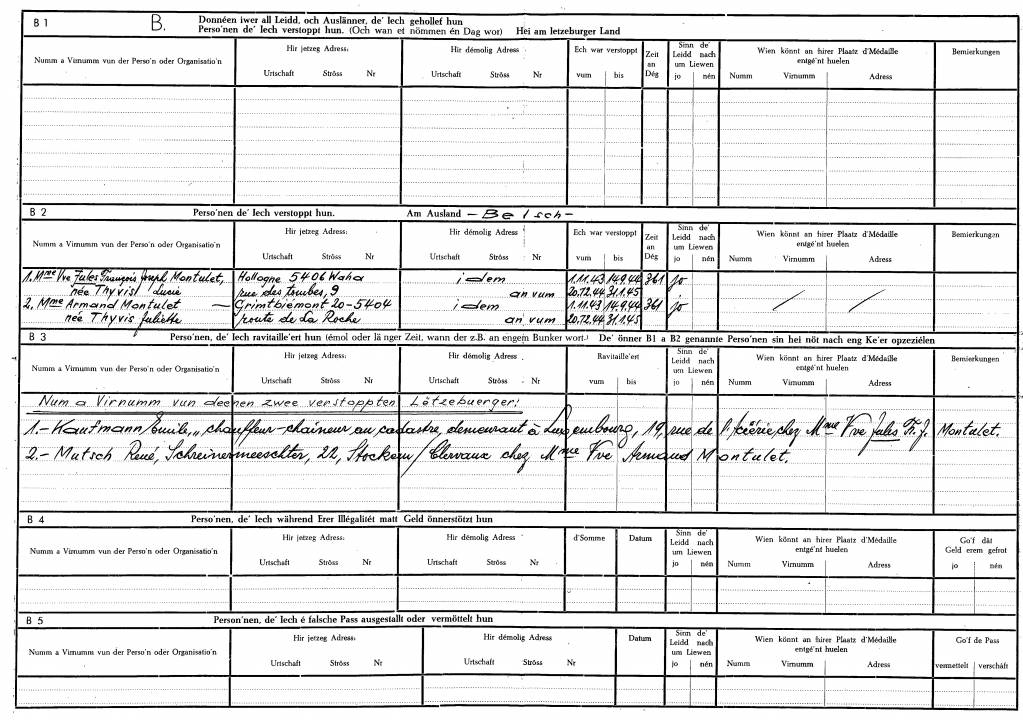 B 1 B. Donnéen iwer all Leidd, och Auslänner, de' Iech gehollef hun
Perso'nen de' Iech verstoppt hun. (Och wan et nömmen én Dag wor) Hei am letzeburger Land
Numm a Virnumm vun der Perso'n oder Organisatio'n
Hir jetzeg Adress:
Urtschaft Ströss Nr
Hir démolig Adress
Urtschaft Ströss Nr
Ech war verstoppt
vum bis
Zeit
an
Dég
Sinn de'
Leidd nach
um Liewen
jo nén
Wien könnt an hirer Plaatz d'Médaille
entgé'nt huelen
Numm Virnumm Adress
Bemierkungen
B 2 Perso'nen de' Iech verstoppt hun. Am Ausland - Belsch -
Numm a Virnumm vun der Perso'n oder Organisatio'n
Hir jetzeg Adress:
Urtschaft Ströss Nr
Hir démolig Adress
Urtschaft Ströss Nr
Ech war verstoppt
vum bis
Zeit
an
Dég
Sinn de'
Leidd nach
um Liewen
jo nén
Wien könnt an hirer Plaatz d'Médaille
entgé'nt huelen
Numm Virnumm Adress
Bemierkungen
1. Mme Vve Jules François Joseph Montulet, Hollogne 5406 Waha idem 1.11.43 14.9.44 361 jo
née Thyvist Lucie rue des tombes, 9 an vum 20.12.44 31.1.45
2. Mme Armand Montulet — Grimbiémont 20-5404 idem 1.11.43 14.9.44 361 jo / /
née Thyvis Juliette route de La Roche an vum 20.12.44 31.1.45
B 3 Perso'nen, de' Iech ravitaille'ert hun (émol oder länger Zeit, wann der z.B. an engem Bunker wort.) De' önner B1 a B2 genannte Perso'nen sin hei nöt nach eng Ke'er opzeziélen
Numm a Virnumm vun der Perso'n oder Organisatio'n
Hir jetzeg Adress:
Urtschaft Ströss Nr
Hir démolig Adress
Urtschaft Ströss Nr
Ravitaille'ert
vum bis
Sinn de'
Leidd nach
um Liewen
jo nén
Wien könnt an hirer Plaatz d'Médaille
entgé'nt huelen
Numm Virnumm Adress
Bemierkungen
Num a Virnumm vun deenen zwee verstoppten Lëtzebuerger:
1.- Kaufmann Emile, chauffeur-chaîneur au cadastre, demeurant à Luxembourg, 19, rue de chez Mme Vve Jules Fr. J. Montulet.
2.- Mutsch René, Schreinermeeschter, 22, Stockem/Clervaux chez Mme Vve Armand Montulet.
B 4 Perso'nen, de' Iech während Erer Illégalitét matt Geld önnerstötzt hun
Numm a Virnumm vun der Perso'n oder Organisatio'n
Hir jetzeg Adress:
Urtschaft Ströss Nr
Hir démolig Adress
Urtschaft Ströss Nr
d'Somme Datum
Sinn de'
Leidd nach
um Liewen
jo nén
Wien könnt an hirer Plaatz d'Médaille
entgé'nt huelen
Numm Virnumm Adress
Go'f dât
Geld erem gefrot
jo nén
B 5 Person'nen, de' Iech é falsche Pass ausgestallt oder vermöttelt hun
Numm a Virnumm vun der Perso'n oder Organisatio'n
Hir jetzeg Adress:
Urtschaft Ströss Nr
Hir démolig Adress
Urtschaft Ströss Nr
Datum
Sinn de'
Leidd nach
um Liewen
jo nén
Wien könnt an hirer Plaatz d'Médaille
entgé'nt huelen
Numm Virnumm Adress
Go'f de Pass
vermettelt verschâft